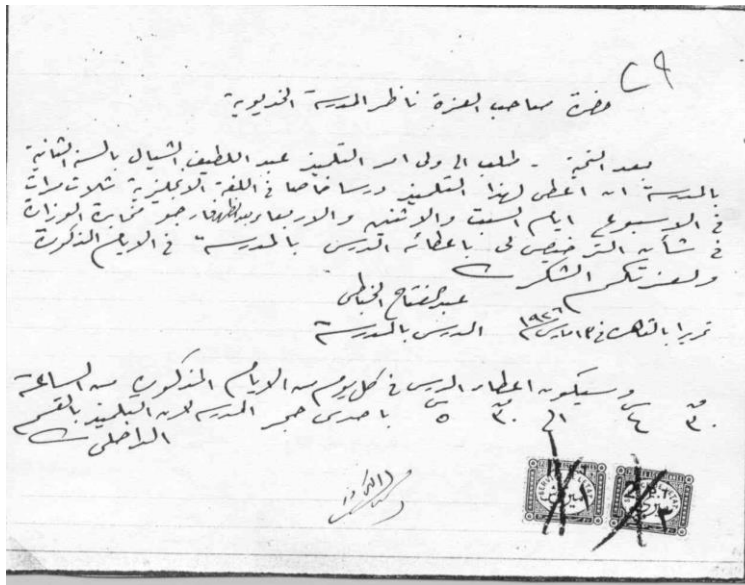 ٢٩
حضرة صاحب العزة ناظر المدرسة الخديوية
بعد التحية - طلب الى ولى امر التلميذ عبد اللطيف الشيال بالسنة الثانية
بالمدرسة ان اعطى لهذا التلميذ درسا خاصا فى اللغة الانجليزية ثلاث مرات
فى الاسبوع ايام السبت والاثنين والاربعاء بعد الظهر فارجو مخابرة الوزارة
فى شأن الترخيص لى باعطائه الدرس بالمدرسة فى الايام المذكورة
ولعزتكم الشكر
عبد الفتاح
تحريرا بالقاهرة فى ١٣ مارس ١٩٢٦ المدرس بالمدرسة
وسيكون اعطاء الدرس فى كل يوم من الايام المذكورة من الساعة
٣٠ ق ٤ س الى ٣٠ ق ٥ س باحدى حجر المدرسة لان التلميذ بالقسم
الداخلى